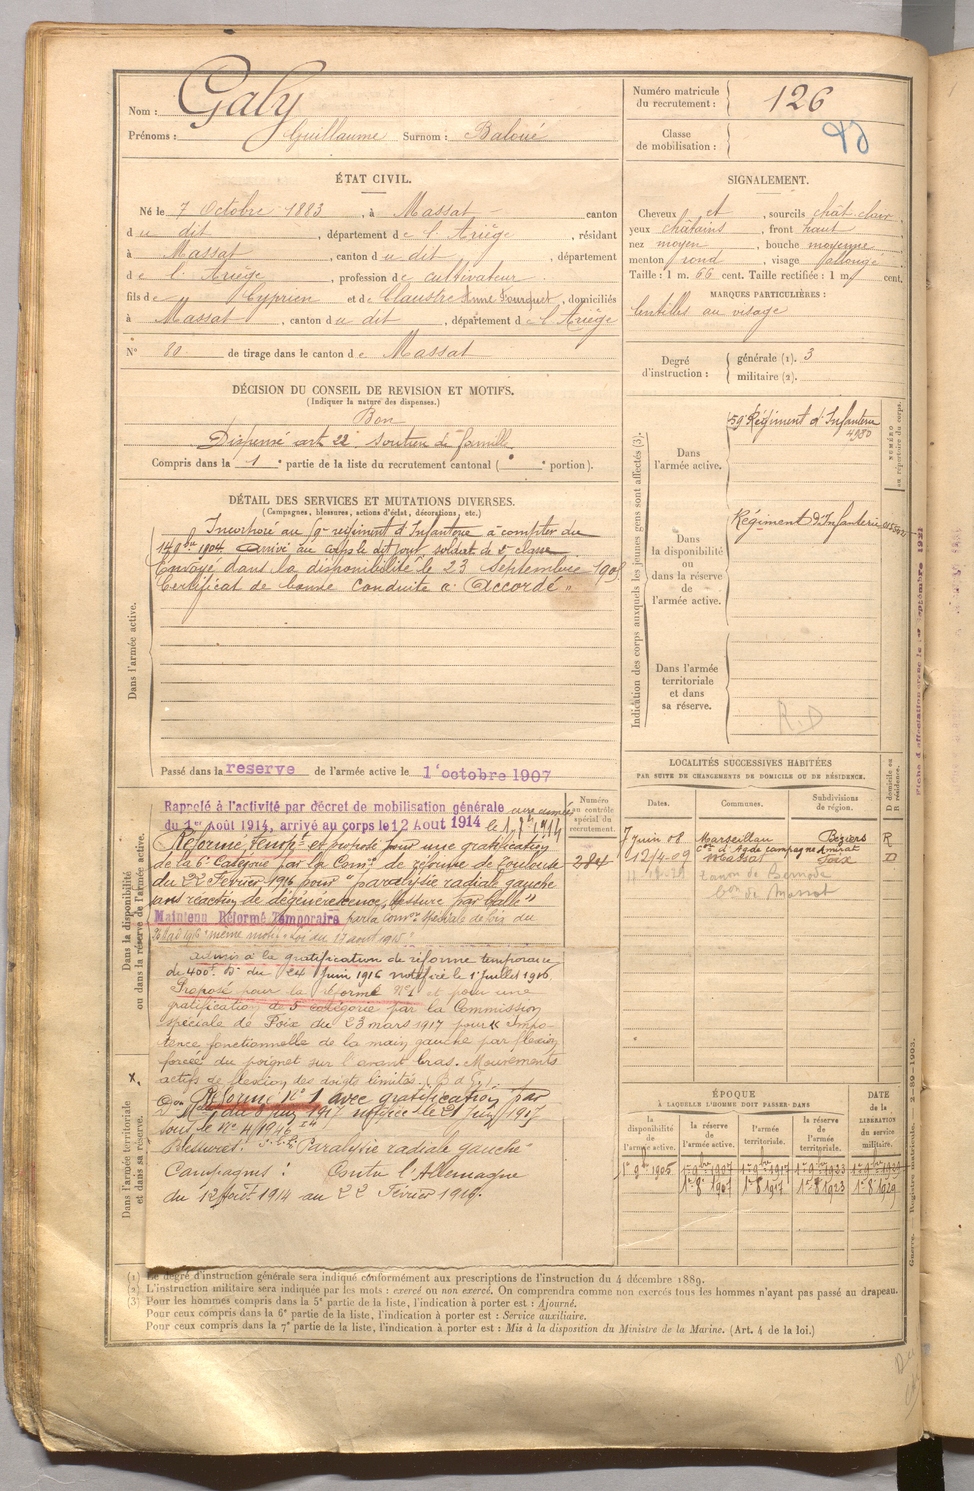 Nom : Galy
Prénoms : Guillaume Surnom : Baloué
Numéro matricule du recrutement : 126
Classe de mobilisation :
ÉTAT CIVIL.
Né le 7 Octobre 1883, à Massat canton
du dit, département de l'Ariège, résidant
à Massat, canton du dit, département
de l'Ariège, profession de cultivateur
fils de Cyprien et de Claustre Anne Fourquet, domiciliés
à Massat, canton du dit, département de l'Ariège
N° 80 de tirage dans le canton de Massat
SIGNALEMENT.
Cheveux et, sourcils chât. clair,
yeux châtains, front haut
nez moyen, bouche moyenne
menton rond, visage allongé
Taille : 1 m. 66 cent. Taille rectifiée : 1 m. cent.
MARQUES PARTICULIÈRES :
lentilles au visage
Degré d'instruction : générale (1). 3
militaire (2).
DÉCISION DU CONSEIL DE REVISION ET MOTIFS.
(Indiquer la nature des dispenses.)
Bon
Dispensé art 22. Soutien de famille
Compris dans la 1e partie de la liste du recrutement cantonal ( e portion).
DÉTAIL DES SERVICES ET MUTATIONS DIVERSES.
(Campagnes, blessures, actions d'éclat, décorations, etc.)
Dans l'armée active.
Incorporé au 59e régiment d'Infanterie à compter du
14 9bre 1904. Arrivé au corps le dit jour, soldat de 2e classe
Envoyé dans la disponibilité le 23 Septembre 1905.
Certificat de bonne conduite « Accordé »
Passé dans la reserve de l'armée active le 1er octobre 1907
Indication des corps auxquels les jeunes gens sont affectés (3).
NUMÉRO au répertoire du corps.
Dans l'armée active.
59e Régiment d'Infanterie
4980
Dans la disponibilité ou dans la réserve de l'armée active.
Régiment d'Infanterie
Dans l'armée territoriale et dans sa réserve.
R.D
Dans la disponibilité ou dans la réserve de l'armée active.
Rappelé à l'activité par décret de mobilisation générale
du 1er Août 1914, arrivé au corps le 12 Aout 1914
Réformé temp.re et proposé pour une gratification
de la 6e Catégorie par la Com.on de réforme de Toulouse
du 22 Février 1916 pour "paralysie radiale gauche
sans réaction de dégénérescence, blessure par balle"
Maintenu Réformé Temporaire par la Com.on spéciale de Foix du
même motif loi du 17 août 1915
Admis à la gratification de réforme temporaire
de 400f. D.on du 24 Juin 1916 notifiée le 1er Juillet 1916
Proposé pour la réforme N°1 et pour une
gratification de 5e catégorie par la Commission
spéciale de Foix du 23 mars 1917 pour « Impo-
tence fonctionnelle de la main gauche par flexion
forcée du poignet sur l'avant bras. Mouvements
actifs de flexion des doigts limités
Réformé n° 1 avec gratification par
Blessures : "Paralysie radiale gauche"
Campagnes : Contre l'Allemagne
du 12 Août 1914 au 22 Février 1916.
Dans l'armée territoriale et dans sa réserve.
Numéro au contrôle spécial du recrutement.
LOCALITÉS SUCCESSIVES HABITÉES
PAR SUITE DE CHANGEMENTS DE DOMICILE OU DE RÉSIDENCE.
Dates. Communes. Subdivisions de région. D domicile ou R résidence.
7 juin 08 Marseillan Béziers R
Cne d'Agde campagne Amirat
12/4-09 Massat Foix D
ÉPOQUE
À LAQUELLE L'HOMME DOIT PASSER DANS
la disponibilité de l'armée active. la réserve de l'armée active. l'armée territoriale. la réserve de l'armée territoriale. DATE de la LIBÉRATION du service militaire.
1er 9bre 1905 1er 9bre 1907 1er 9bre 1917 1er 9bre 1923 1er 9bre 1929
1er 8bre 1907 1er 8bre 1917 1er 8bre 1923 1er 8bre 1929
(1) Le degré d'instruction générale sera indiqué conformément aux prescriptions de l'instruction du 4 décembre 1889.
(2) L'instruction militaire sera indiquée par les mots : exercé ou non exercé. On comprendra comme non exercés tous les hommes n'ayant pas passé au drapeau.
(3) Pour les hommes compris dans la 5e partie de la liste, l'indication à porter est : Ajourné.
Pour ceux compris dans la 6e partie de la liste, l'indication à porter est : Service auxiliaire.
Pour ceux compris dans la 7e partie de la liste, l'indication à porter est : Mis à la disposition du Ministre de la Marine. (Art. 4 de la loi.)
Guerre. — Registre matricule. 2-89-1903.